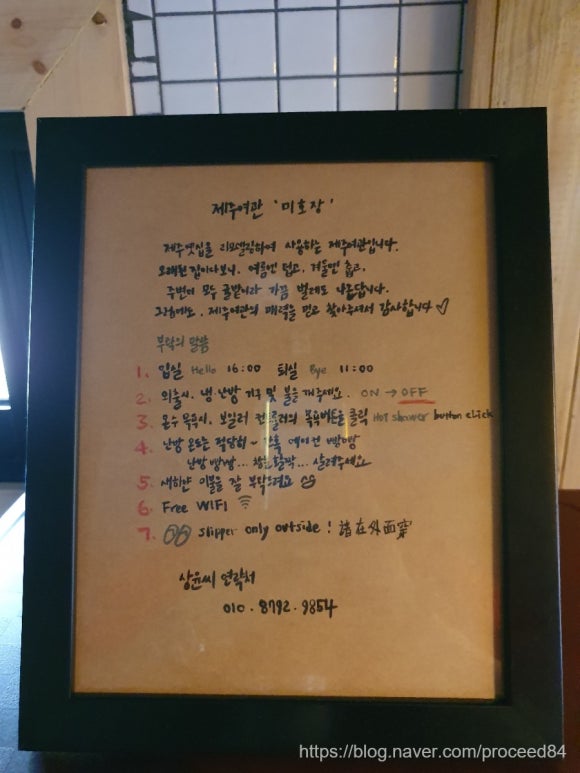 제주여관 '미호장'
제주옛집을 리모델링하여 사용하는 제주여관입니다.
오래된 집이다보니, 여름엔 덥고, 겨울엔 춥고,
주변이 모두 귤밭이라 가끔 벌레도 나온답니다.
그럼에도, 제주여관의 매력을 믿고 찾아주셔서 감사합니다 ♡
부탁의 말씀
1. 입실 Hello 16:00 퇴실 Bye 11:00
2. 외출시, 냉·난방 기구 및 불을 꺼주세요. ON → OFF
3. 온수 목욕시, 보일러 컨트롤러의 목욕버튼을 클릭 Hot shower button click
4. 난방 온도는 적당히~ 간혹 에어컨 빵빵
난방 빵빵... 창문활짝... 살려주세요
5. 새하얀 이불을 잘 부탁드려요
6. Free WIFI
7. slipper only outside! 請在外面穿
상윤씨 연락처
010. 8792. 9854
https://blog.naver.com/proceed84